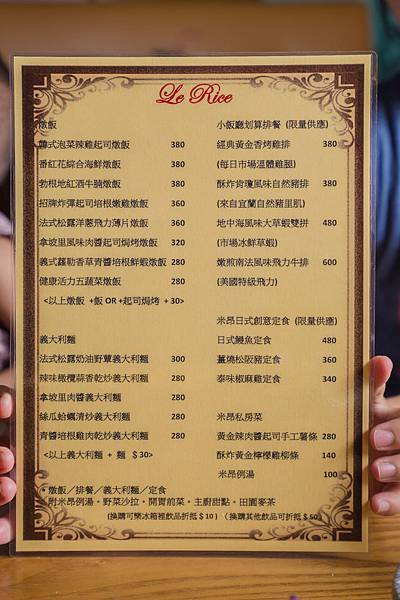 Le Rice
燉飯
韓式泡菜辣雞起司燉飯 380
番紅花綜合海鮮燉飯 380
勃根地紅酒牛腩燉飯 380
招牌炸彈起司培根嫩雞燉飯 360
法式松露洋蔥飛力薄片燉飯 360
拿坡里風味肉醬起司焗烤燉飯 320
義式蘿勒香草青醬培根鮮蝦燉飯 280
健康活力五蔬菜燉飯 280
<以上燉飯 +飯 OR +起司焗烤 + 30>
義大利麵
法式松露奶油野蕈義大利麵 300
辣味橄欖蒜香乾炒義大利麵 280
拿坡里肉醬義大利麵 280
絲瓜蛤蠣清炒義大利麵 280
青醬培根雞肉乾炒義大利麵 280
<以上義大利麵 + 麵 $30>
小飯廳划算排餐 (限量供應)
經典黃金香烤雞排 380
(每日市場溫體雞腿)
酥炸肯瓊風味自然豬排 380
(來自宜蘭自然豬里肌)
地中海風味大草蝦雙拼 480
(市場冰鮮草蝦)
嫩煎南法風味飛力牛排 600
(美國特級飛力)
米昂日式創意定食 (限量供應)
日式鰻魚定食 480
薑燒松阪豬定食 360
泰味椒麻雞定食 340
米昂私房菜
黃金辣肉醬起司手工薯條 280
酥炸黃金檸檬雞柳條 140
米昂例湯 100
*燉飯／排餐／義大利麵／定食
附米昂例湯。野菜沙拉。開胃前菜。主廚甜點。田園麥茶
(換購可樂冰箱裡飲品折抵$10) (換購其他飲品可折抵$50)